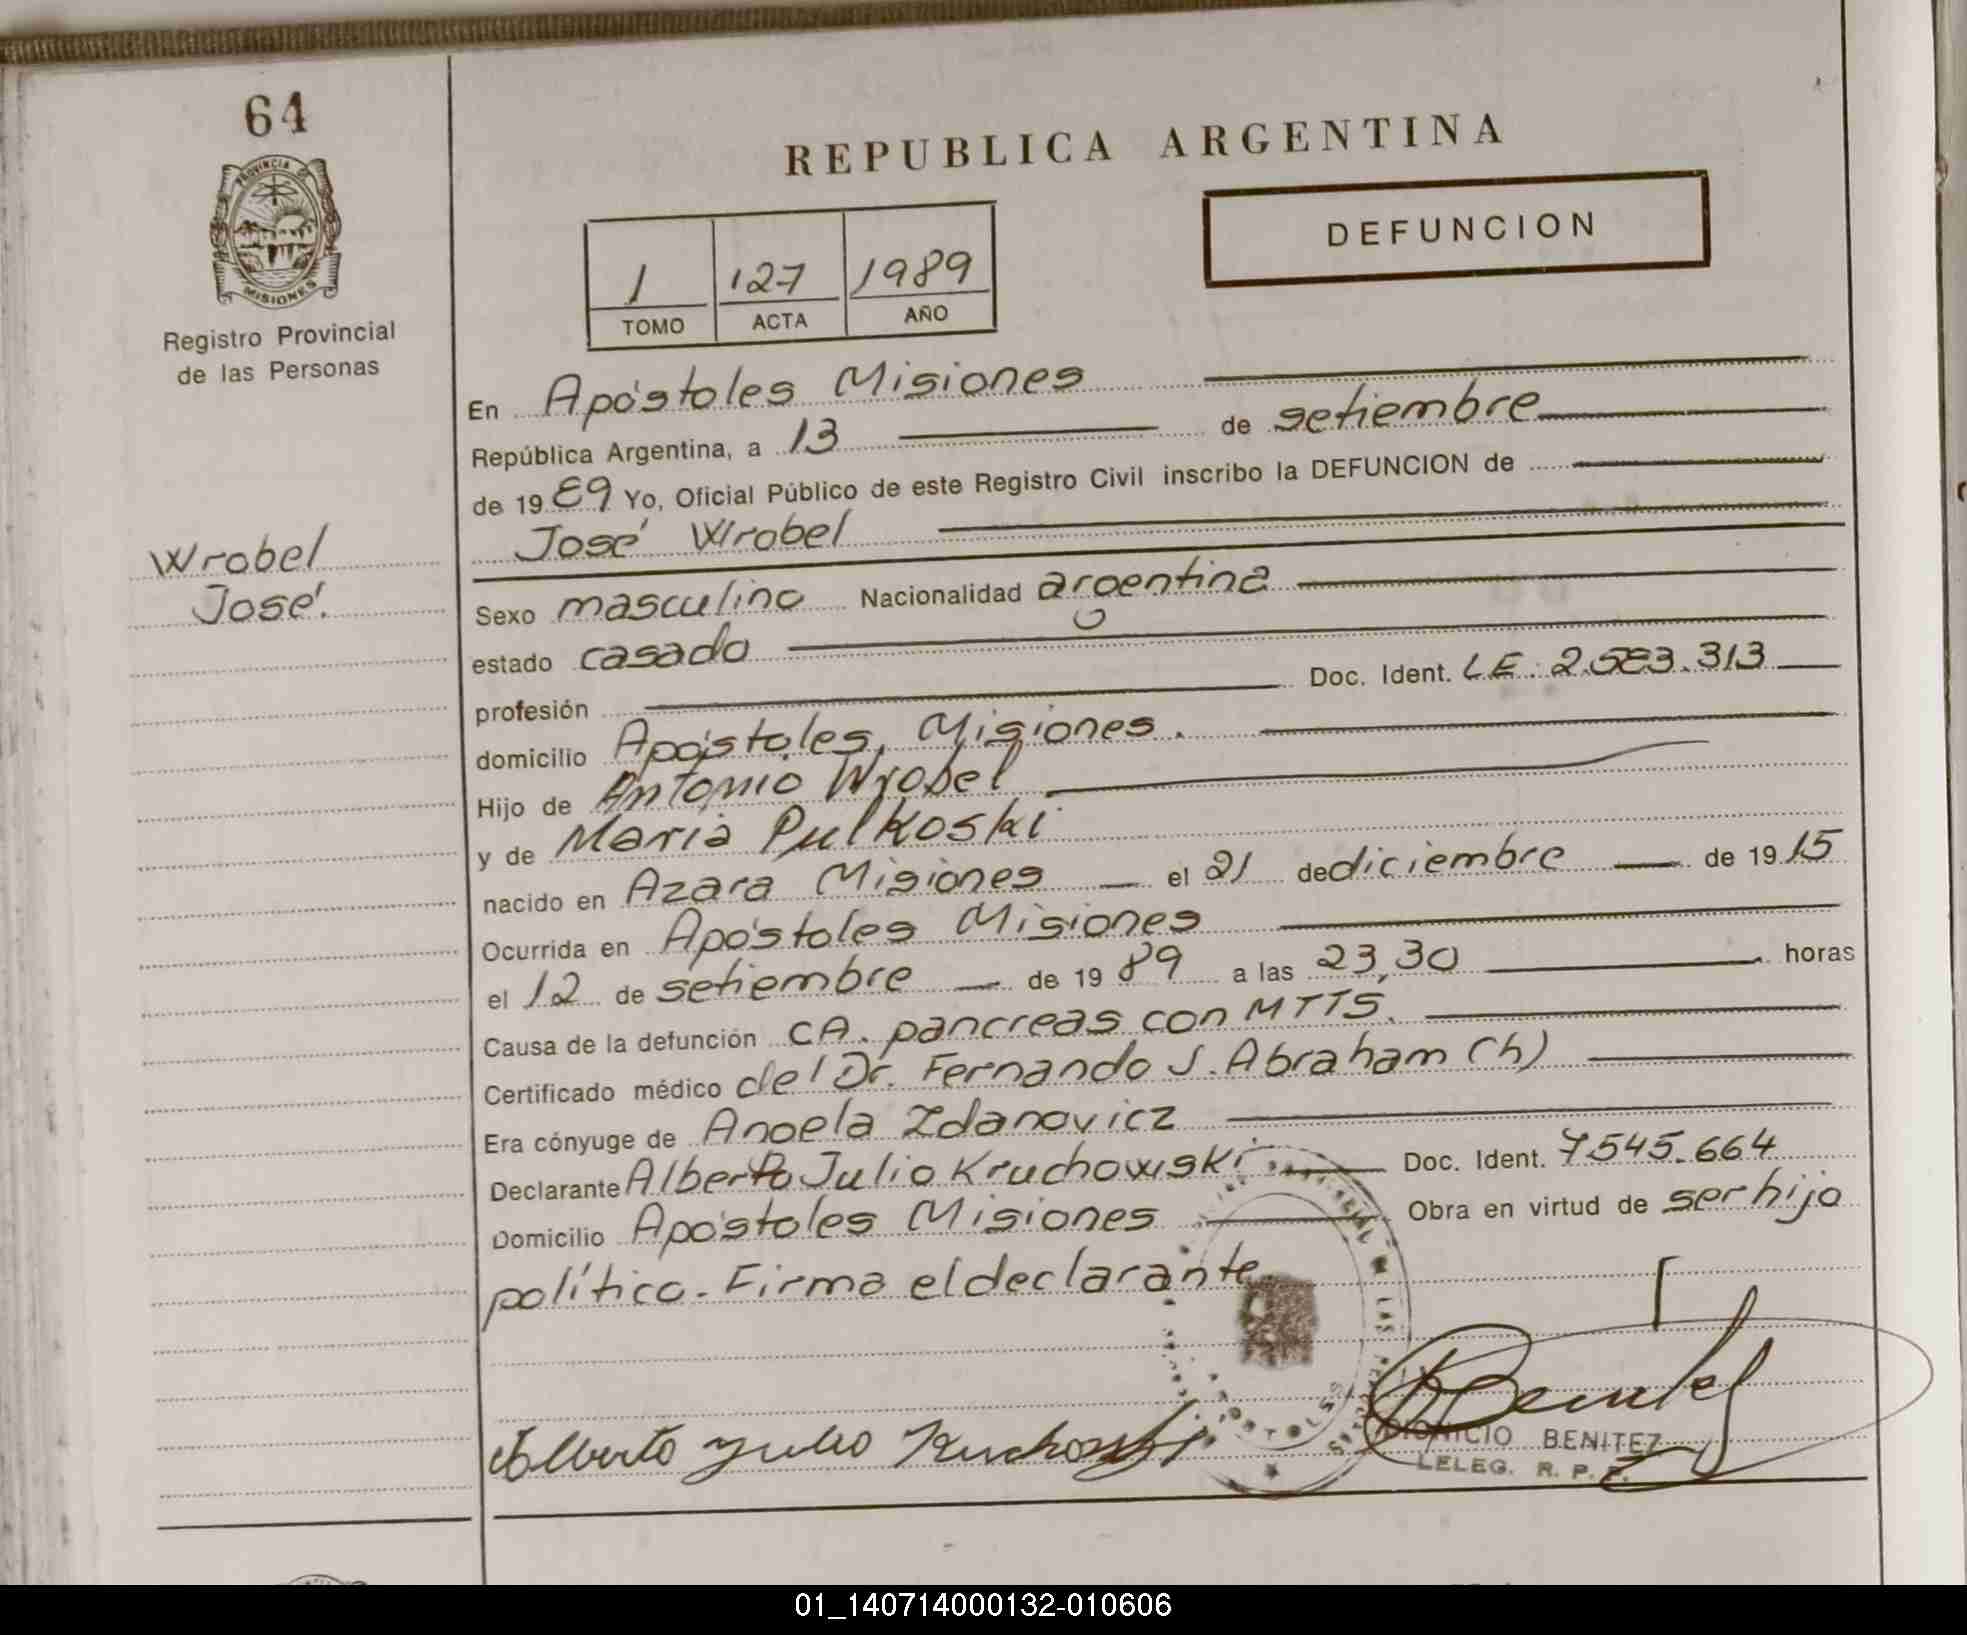 64
PROVINCIA DE
MISIONES
Registro Provincial
de las Personas
Wrobel
José.
REPUBLICA ARGENTINA
DEFUNCION
1 127 1989
TOMO ACTA AÑO
En Apóstoles Misiones
República Argentina, a 13 de setiembre
de 1989 Yo, Oficial Público de este Registro Civil inscribo la DEFUNCION de
José Wrobel
Sexo masculino Nacionalidad argentina
estado casado
profesión Doc. Ident. LE. 2.583.313
domicilio Apóstoles, Misiones.
Hijo de Antonio Wrobel
y de Maria Pulkoski
nacido en Azara Misiones el 21 de diciembre de 1915
Ocurrida en Apóstoles Misiones
el 12 de setiembre de 1989 a las 23,30 horas
Causa de la defunción CA. pancreas con MTTS.
Certificado médico del Dr. Fernando J. Abraham (h)
Era cónyuge de Angela Zdanovicz
Declarante Alberto Julio Kruchowski Doc. Ident. 7.545.664
Domicilio Apóstoles Misiones Obra en virtud de ser hijo
político. Firma el declarante
Alberto Julio Kruchowski
DIONICIO BENITEZ
LELEG. R. P. P.
01_140714000132-010606